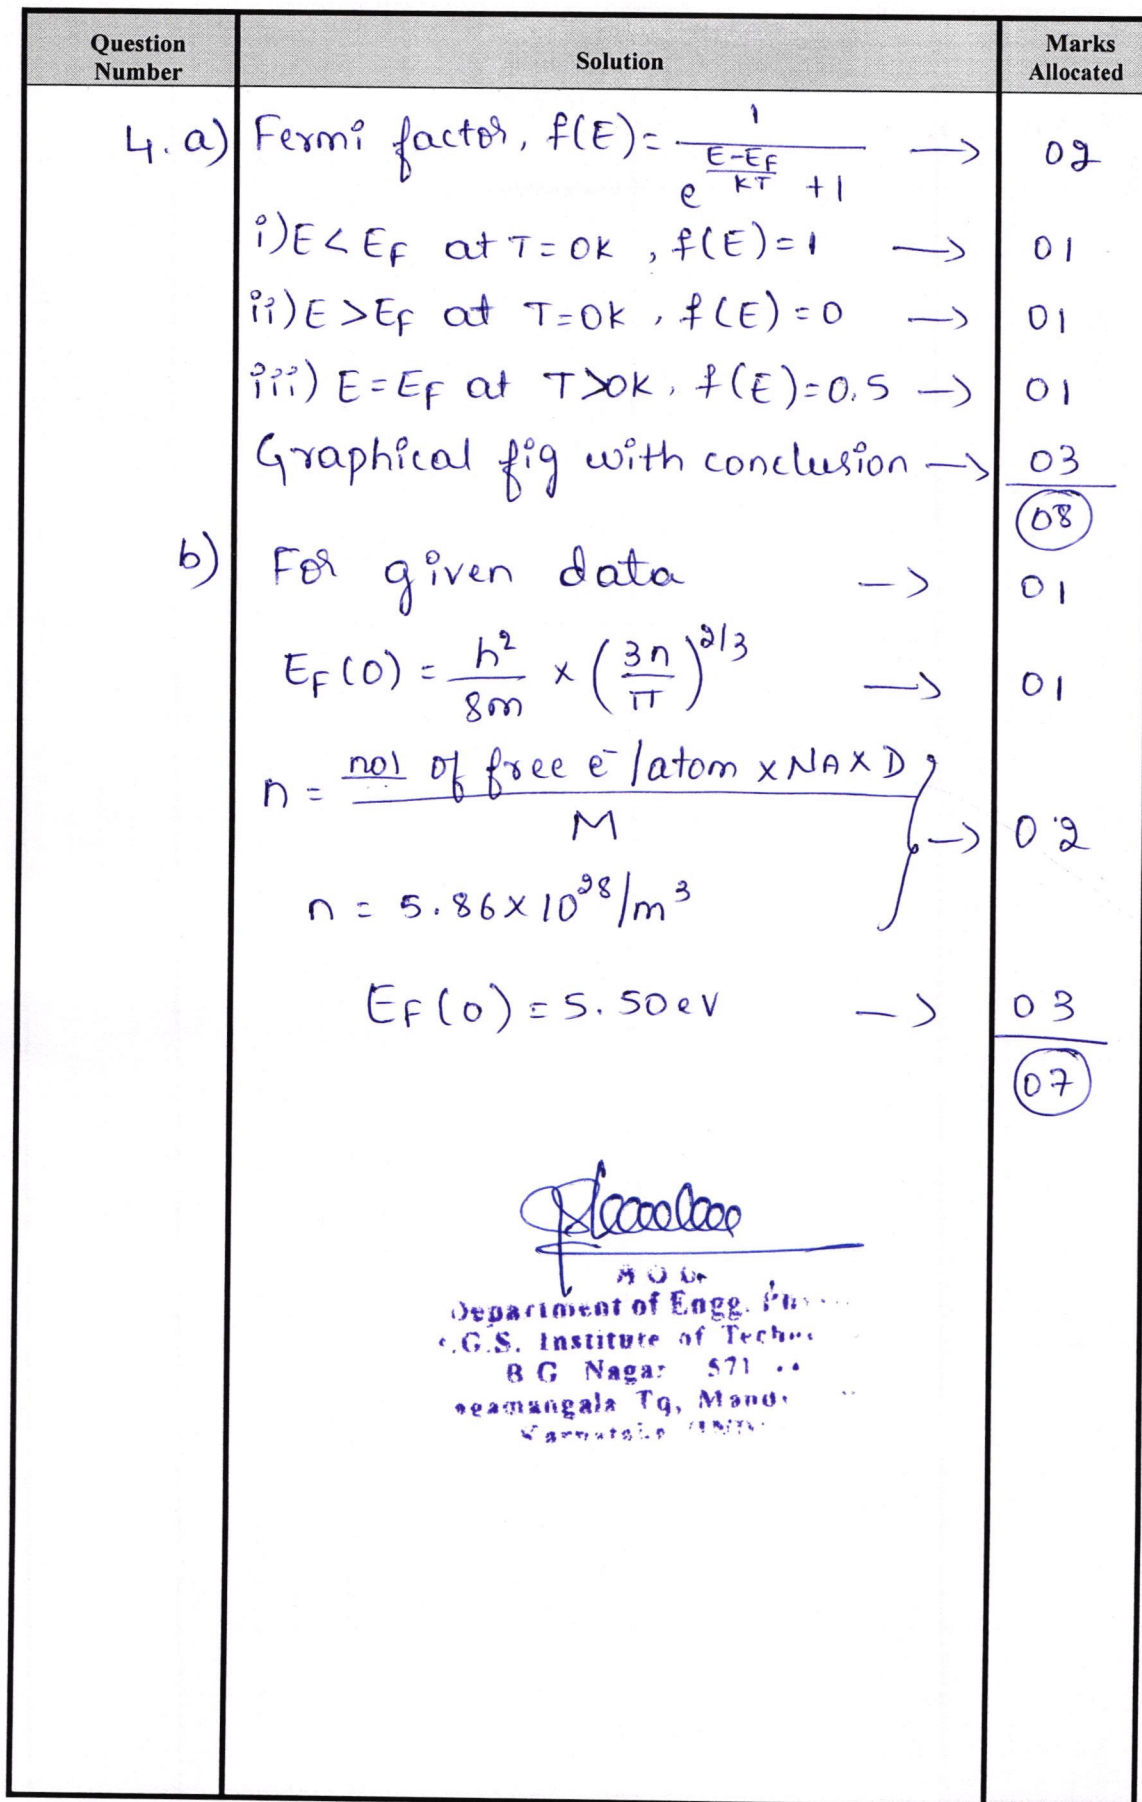 Question Number Solution Marks Allocated
4. a) Fermi factor, f(E) = 1 / e^((E-EF)/KT) + 1 → 02
i) E < EF at T = 0K , f(E) = 1 → 01
ii) E > EF at T = 0K , f(E) = 0 → 01
iii) E = EF at T > 0K , f(E) = 0.5 → 01
Graphical fig with conclusion → 03
08
b) For given data → 01
EF(0) = h²/8m × (3n/π)^2/3 → 01
n = no| of free e⁻/atom × NA × D / M → 02
n = 5.86 × 10^28/m³
EF(0) = 5.50 eV → 03
07
Department of Engg.
.G.S. Institute of
B G Nagar 571
Tq,